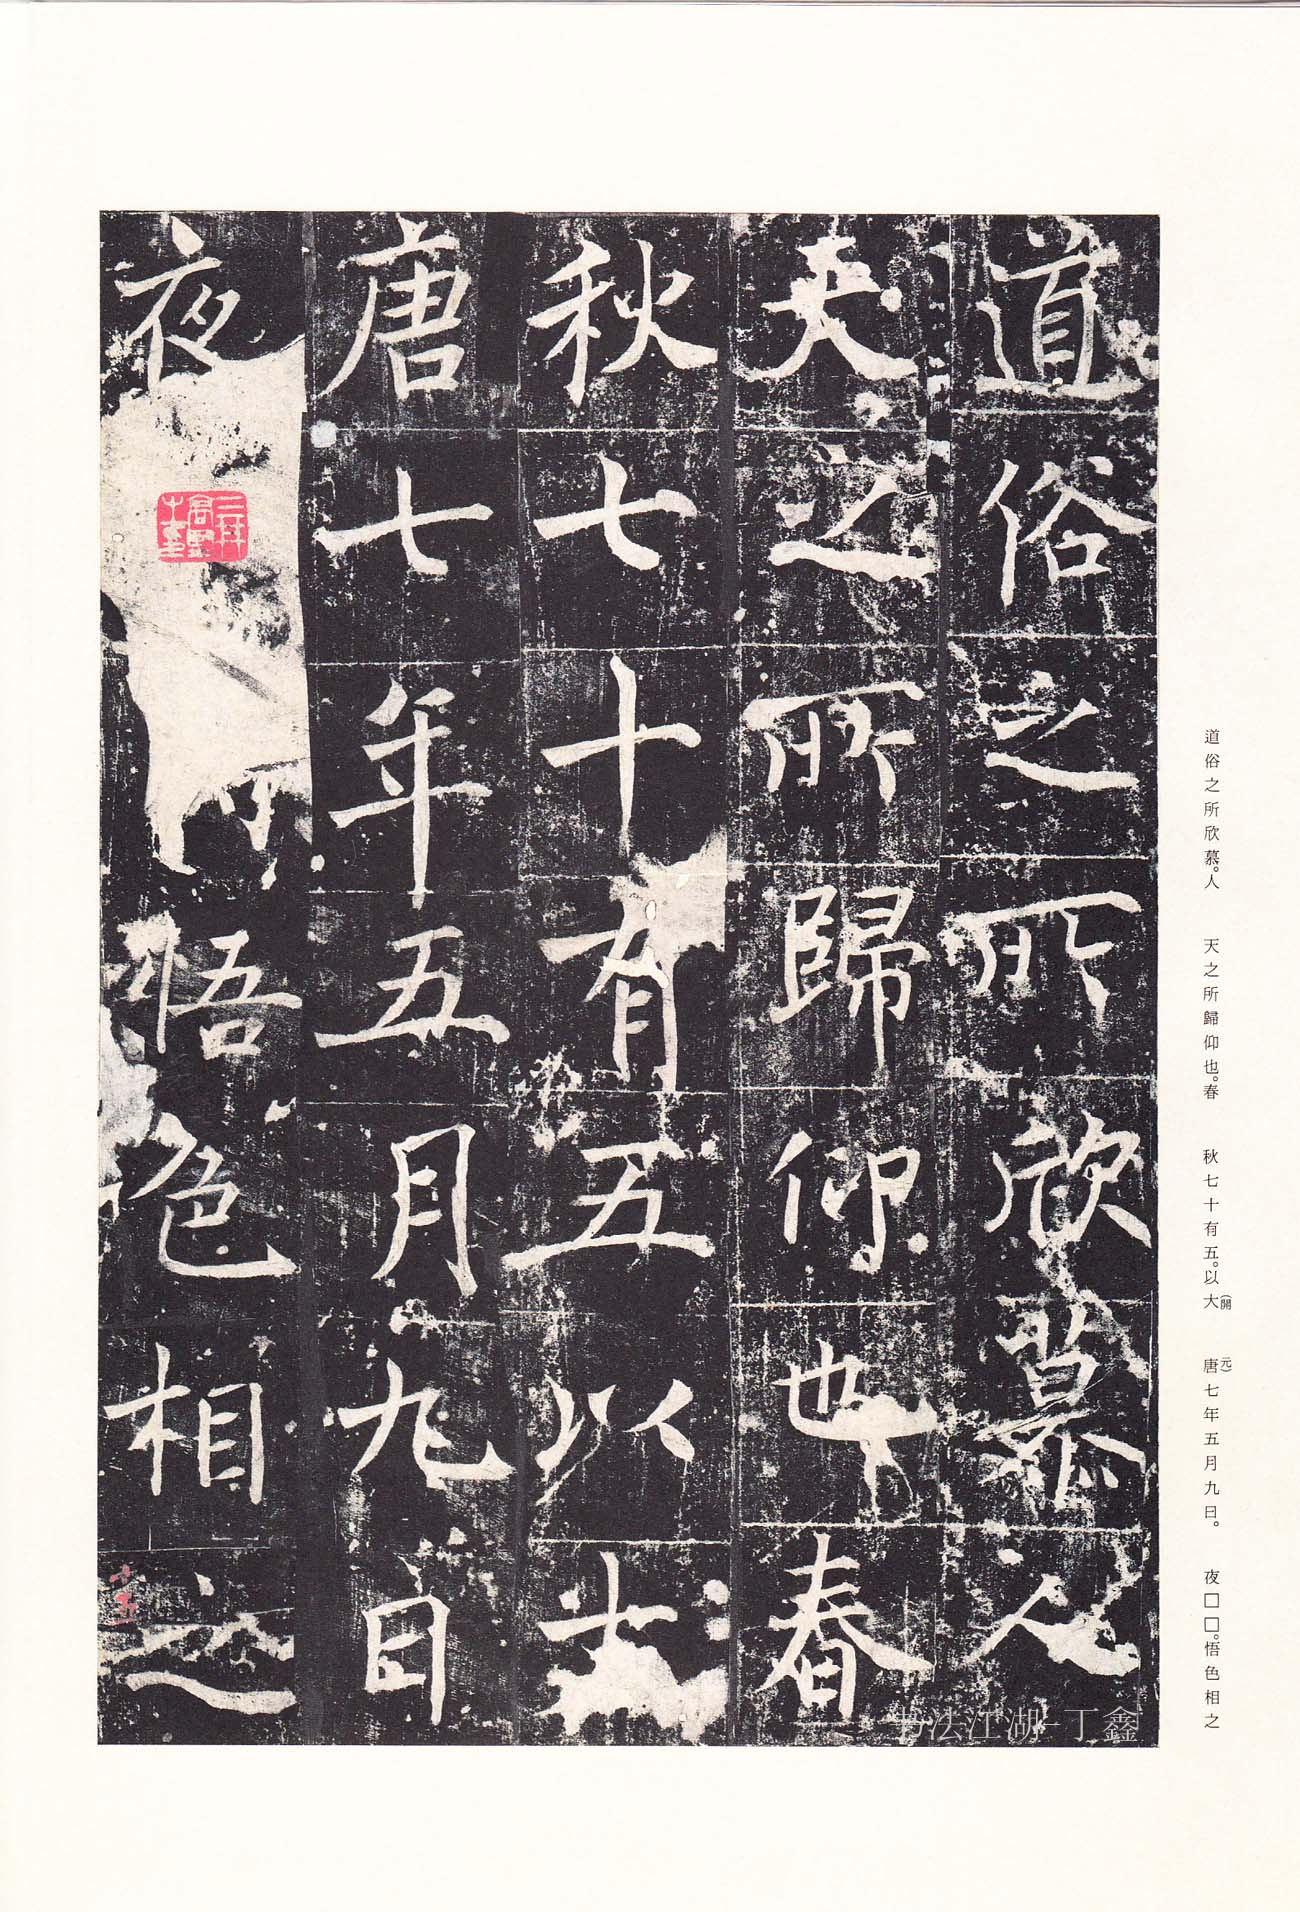 道俗之所欣慕人
天之所歸仰也春
秋七十有五以大
唐七年五月九日
夜
悟色相之
道俗之所欣慕。人
天之所歸仰也。春
秋七十有五。以大(開
唐元)七年五月九日。
夜□□。悟色相之
书法江湖-丁鑫